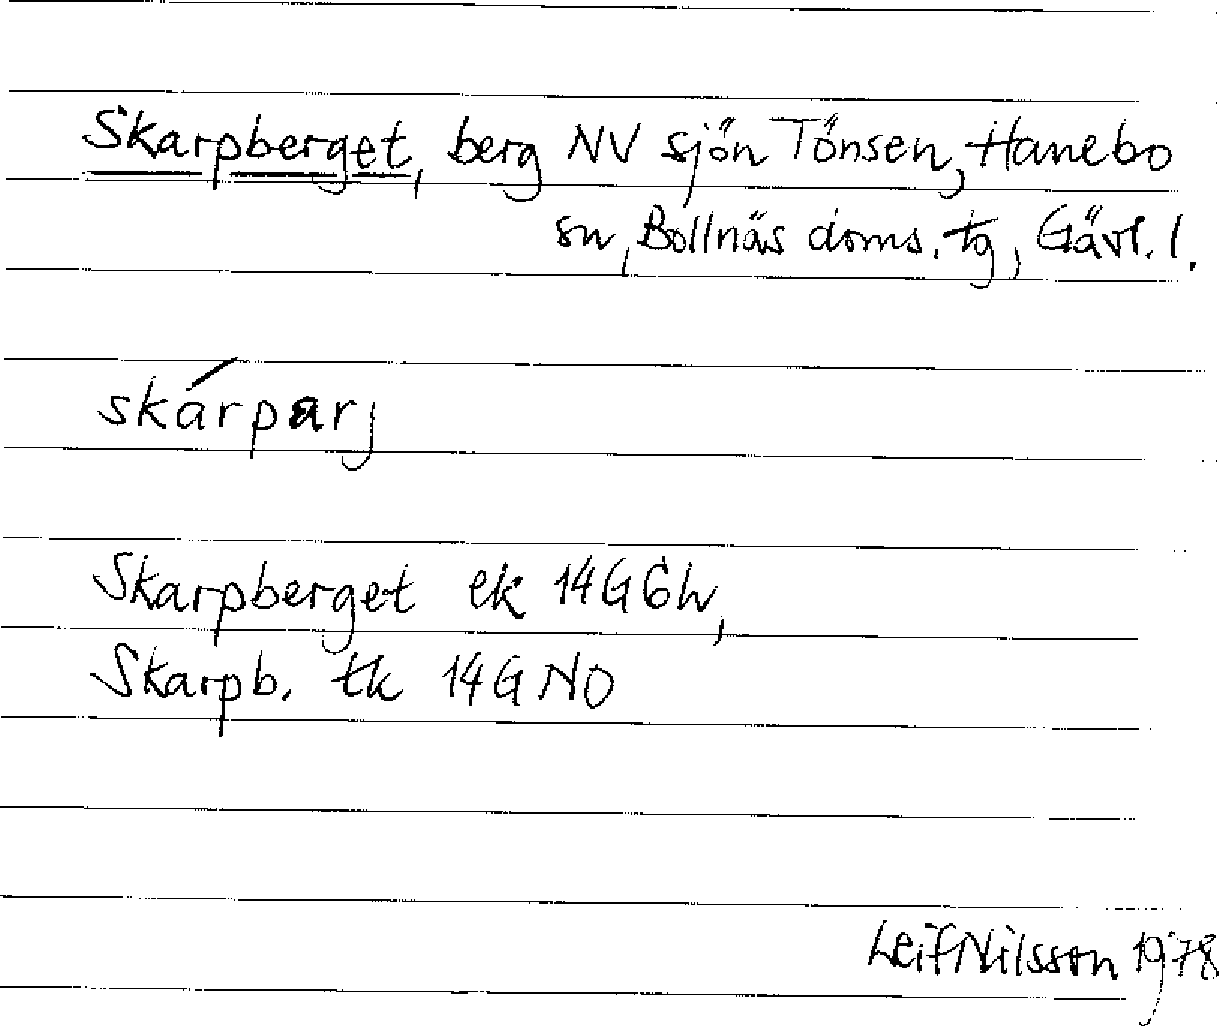 Skarpberget, berg NV sjön Tönsen, Hanebo
sn, Bollnäs doms. tg, Gävl. l.
skárparj
Skarpberget ek 14G6h,
Skarpb. tk 14G NO
Leif Nilsson 1978